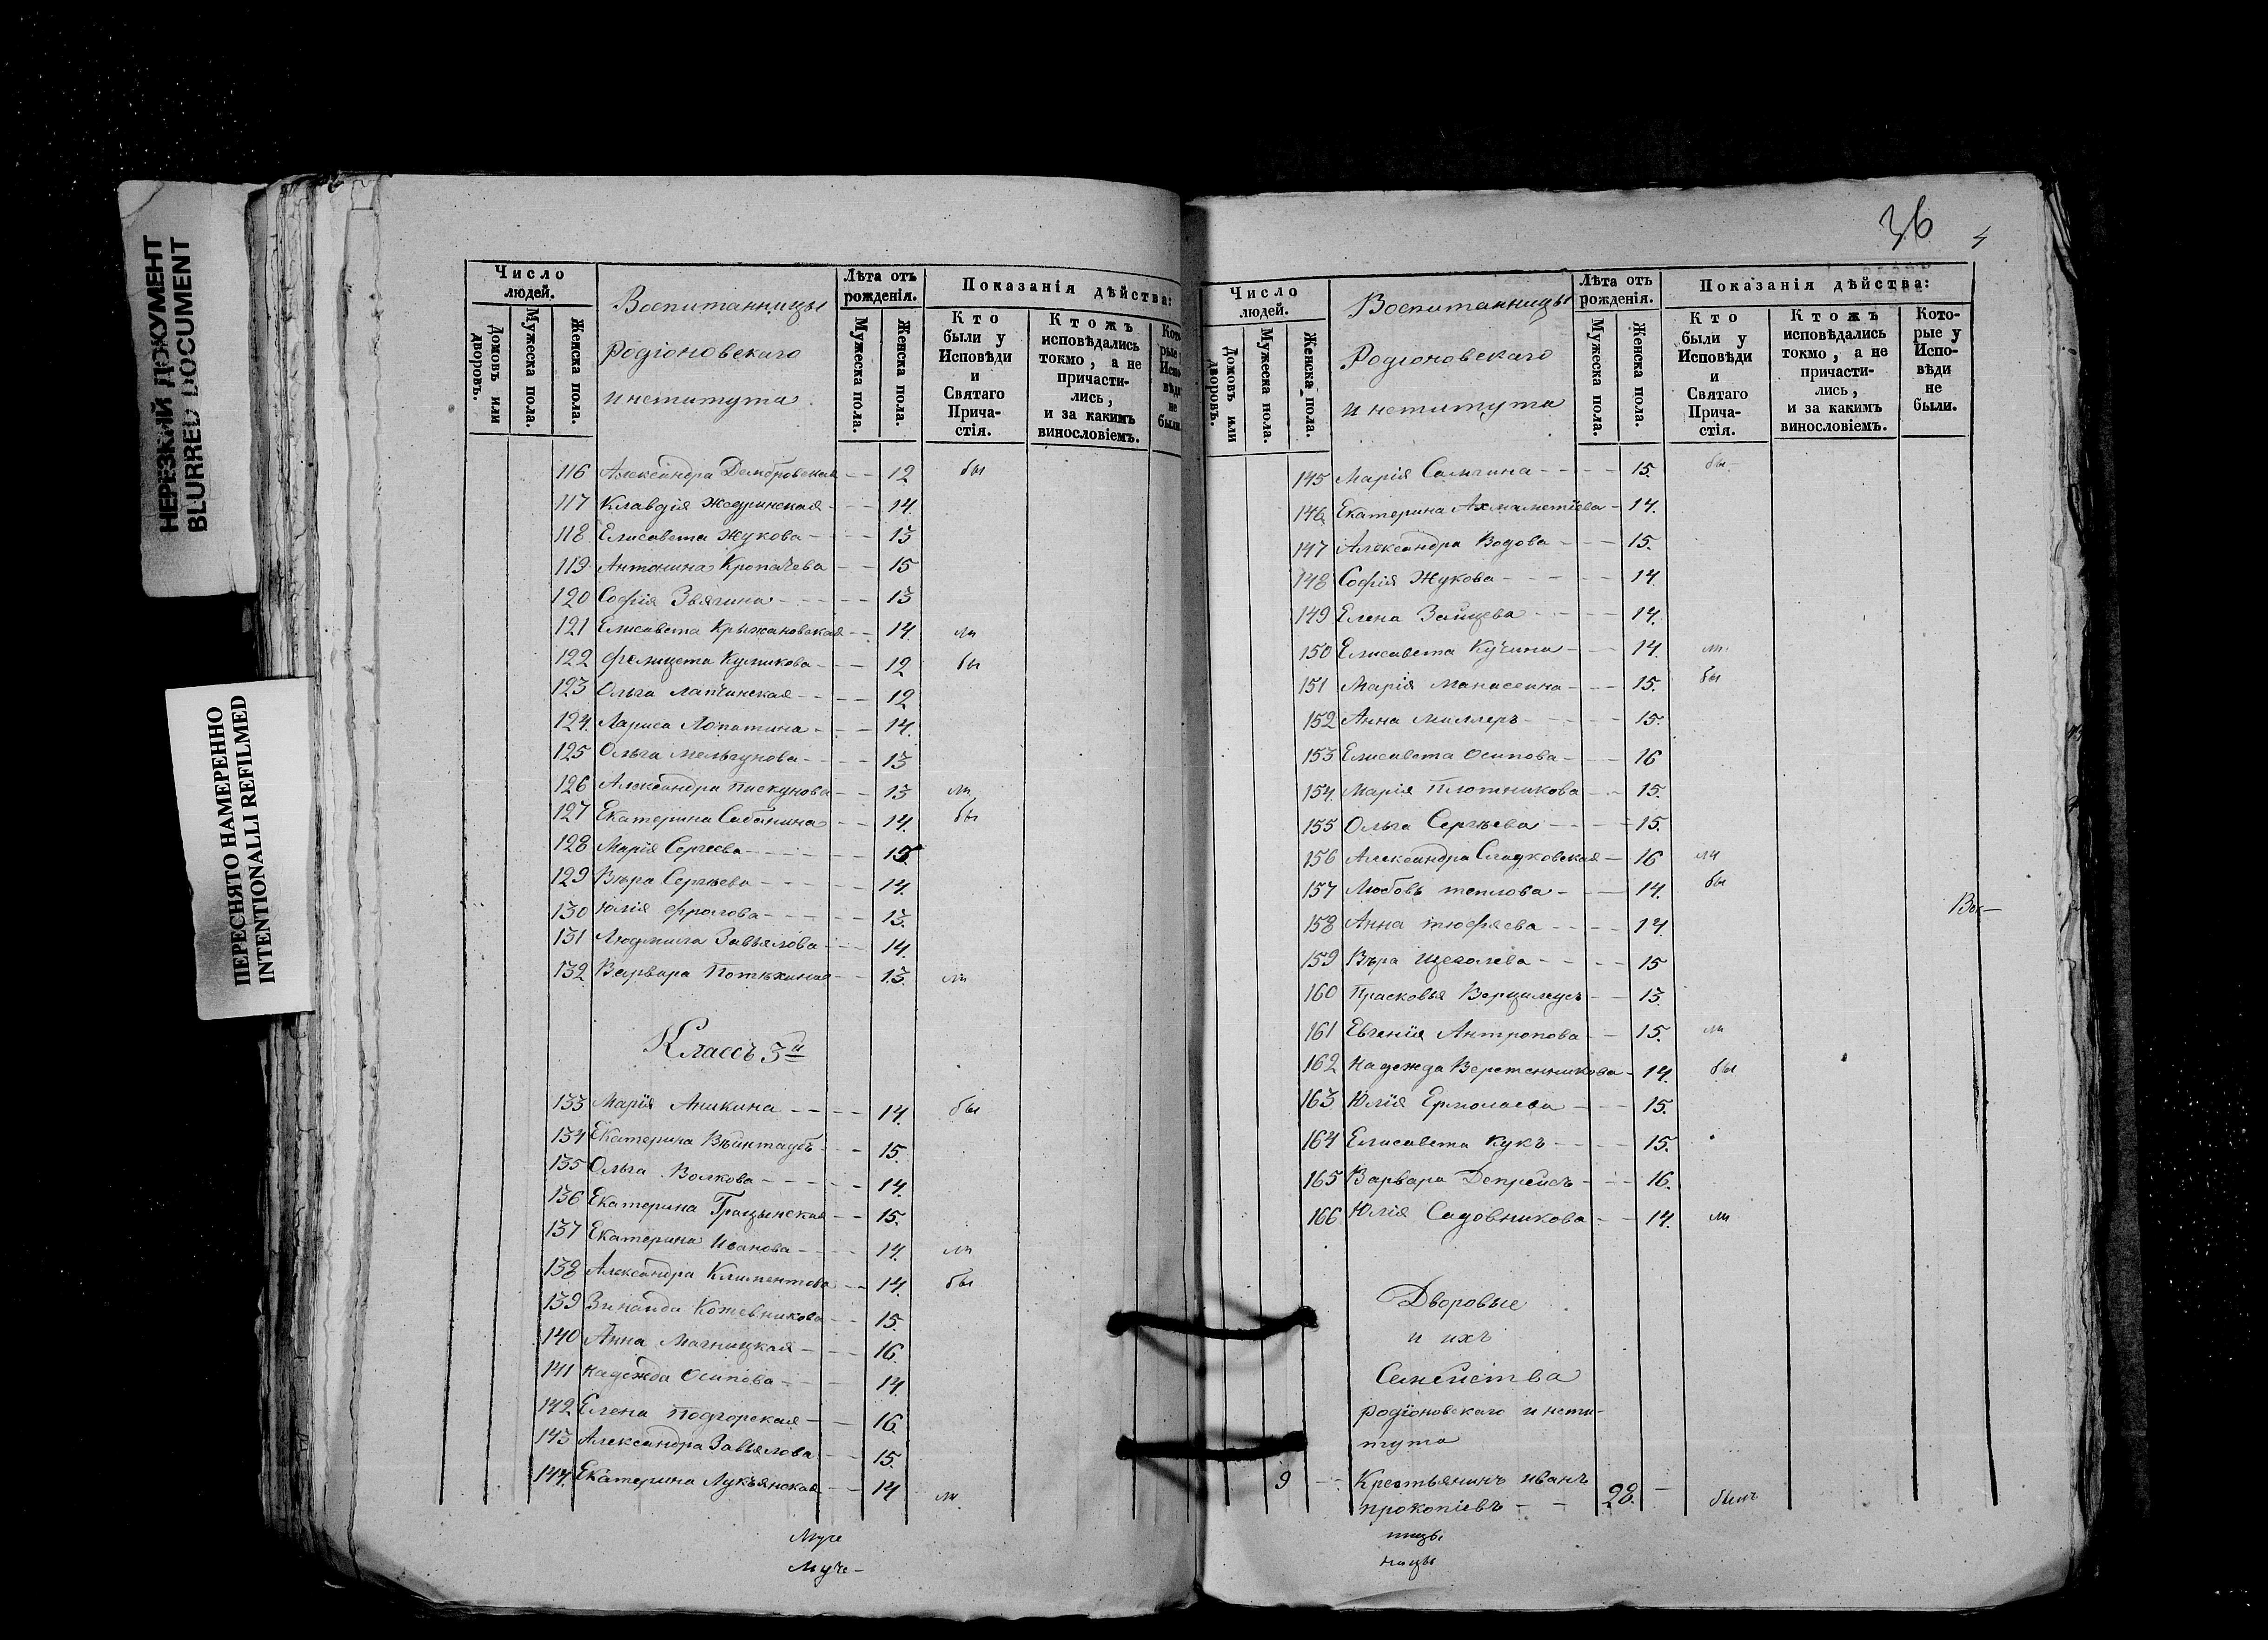 НЕРЕЗКИЙ ДОКУМЕНТ
BLURRED DOCUMENT
ПЕРЕСНЯТО НАМЕРЕННО
INTENTIONALLI REFILMED
Число людей.
Домовъ или дворовъ.
Мужеска пола.
Женска пола.
Воспитанницы
Родіоновскаго
института
Лѣта отъ рожденія.
Мужеска пола.
Женска пола.
Показанія дѣйства:
Кто были у Исповѣди и Святаго Причастія.
Ктожъ исповѣдались токмо, а не причастились, и за какимъ винословіемъ.
116 Александра Домбровская - - 12 бы
117 Клавдія Жедринская - - 14.
118 Елисавета Жукова - - 13
119 Антонина Кропачева - - 15
120 Софія Звягина - - 13
121 Елисавета Крыжановская - - 14. ли
122 Фелицета Куликова - - 12 бы
123 Ольга Лапчинская - - 12
124. Лариса Лопатина - - 14.
125 Ольга Мельгунова - - 13
126 Александра Пискунова - - 13 ли
127 Екатерина Сабанина - - 14. бы
128 Марія Сергеева - - 15
129 Вѣра Сергѣева - - 14.
130 Юлія Фролова - - 13.
131 Людмила Завьялова - - 14.
132 Варвара Потѣхина - - 13. ли
Классъ 3й
133 Марія Аникина - - 14. бы
134 Екатерина - - 15.
135 Ольга Волкова - - 14.
136 Екатерина Грацынская - - 15.
137 Екатерина Иванова - - 14. ли
138 Александра Климентова - - 14. бы
139 Зинаида Кожевникова - - 15.
140 Анна Магницкая - - 16.
141 Надежда Осипова - - 14.
142 Елена Подгорская - - 16.
143 Александра Завьялова - - 15.
144. Екатерина Лукъянская - - 14 ли.
Муче
Муче-
36
Число людей.
Домовъ или дворовъ.
Мужеска пола.
Женска пола.
Воспитанницы
Родіоновскаго
института
Лѣта отъ рожденія.
Мужеска пола.
Женска пола.
Показанія дѣйства:
Кто были у Исповѣди и Святаго Причастія.
Ктожъ исповѣдались токмо, а не причастились, и за какимъ винословіемъ.
Которые у Исповѣди не были.
145 Марія - - 15. бы.
146 Екатерина Ахмаметіева - 14.
147 Александра Водова - - 15.
148 Софія Жукова - - 14.
149 Елена Зайцева - - 14.
150 Елисавета Кучина - - 14. ли.
151 Марія Манасеина - - 15. бы
152 Анна Миллеръ - - 15.
153 Елисавета Осипова - - 16
154. Марія Плотникова - - 15.
155 Ольга Сергѣева - - 15.
156 Александра Сладковская - 16 ли
157 Любовь Теплова - - 14. бы
158 Анна Тюфяева - - 14.
159 Вѣра Щеголева - - 15
160 Прасковья - - 13.
161 Евгенія Антропова - - 15. ли
162 Надежда Веретенникова - 14. бы
163 Юлія Ермолаева - - 15.
164 Елисавета Кукъ - - 15.
165 Варвара Депрейсъ - - 16.
166 Юлія Садовникова - - 14. ли
Дворовые
и ихъ
Семейства
родіоновскаго инсти-
тута
9 - Крестьянинъ иванъ
прокопіевъ - - 28. - былъ
ницы